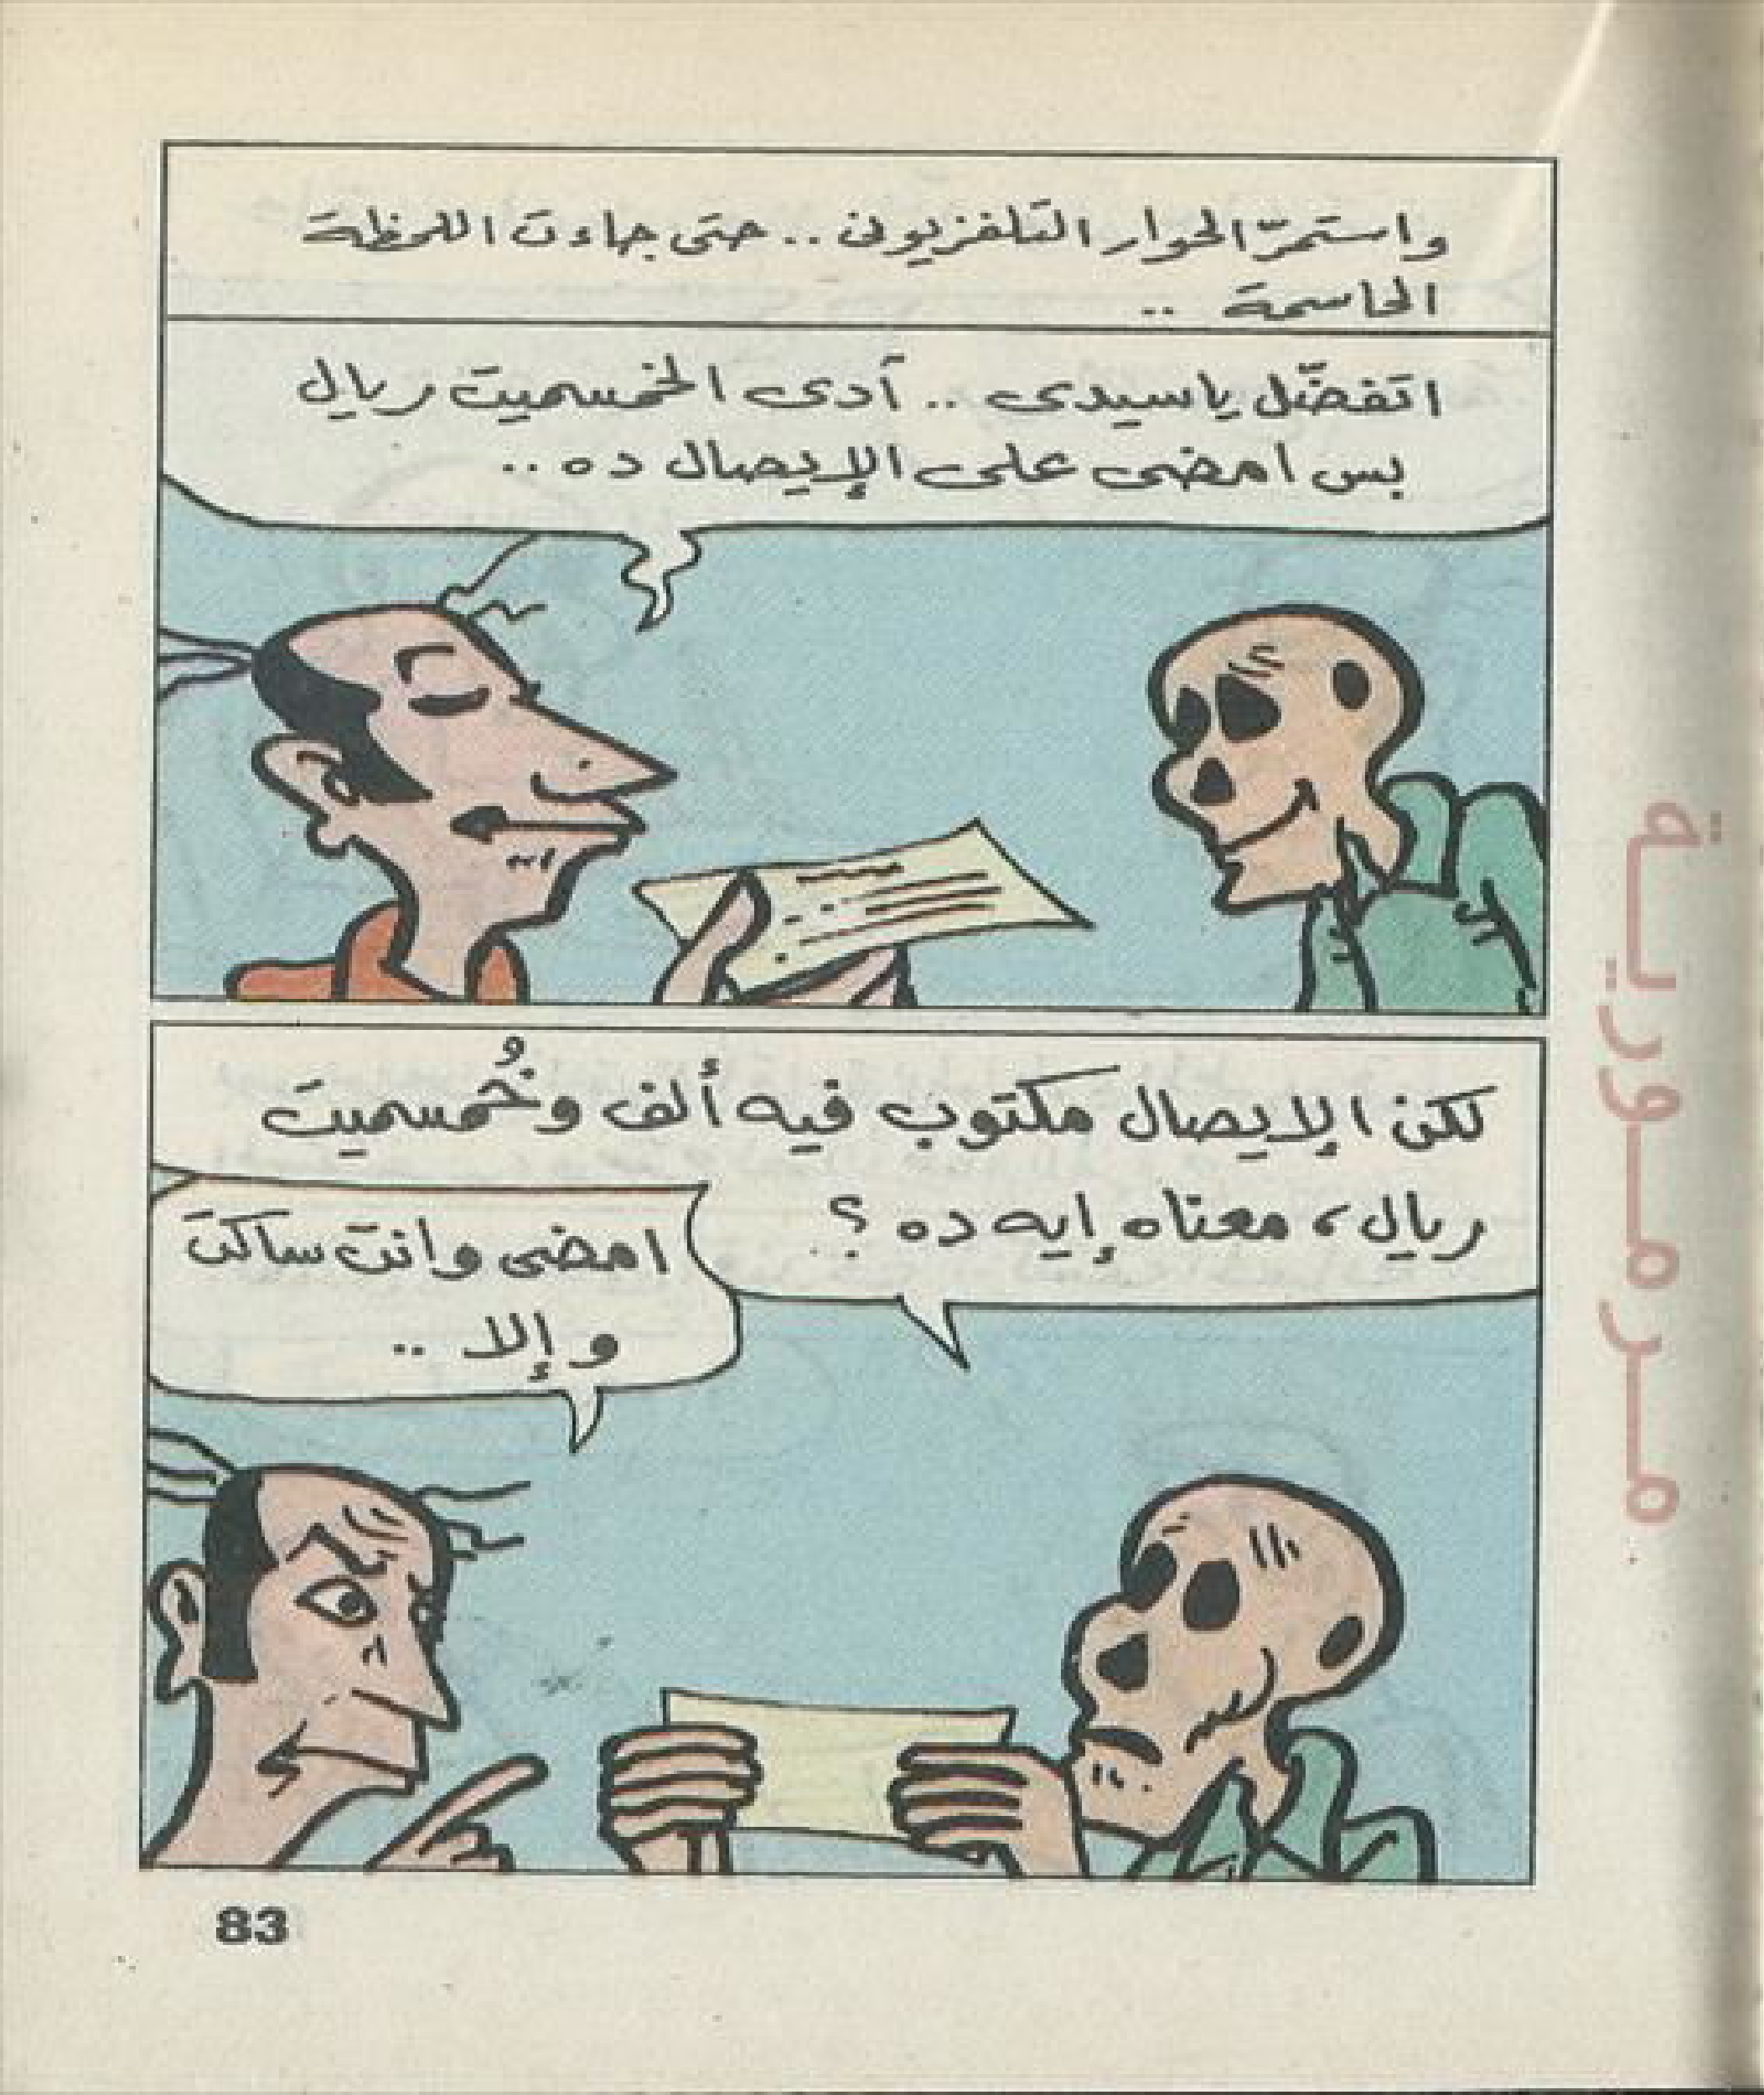 واستمرّ الحوار التلفزيونى .. حتى جاءت اللحظة
الحاسمة ..
اتفضّل ياسيدى .. آدى الخمسميت ريال
بس امضى على الإيصال ده ..
لكن الإيصال مكتوب فيه ألف وخُمسميت
ريال، معناه إيه ده ؟
امضى وانت ساكت
وإلا ..
83
مرمورية